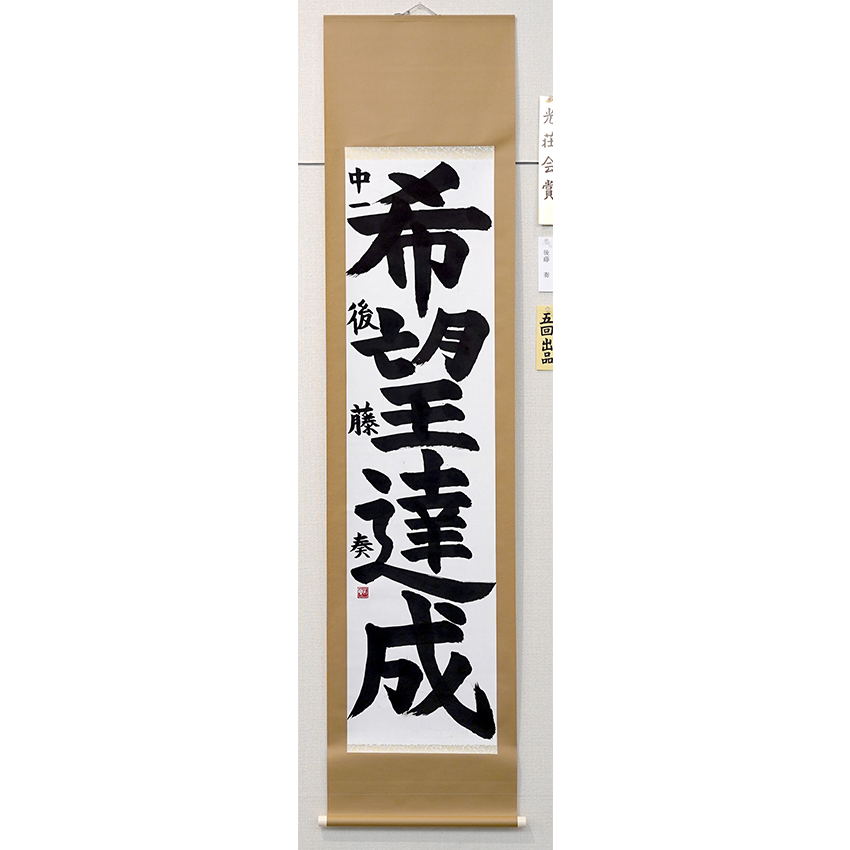 希望達成
中一 後藤 奏
光荘会賞
後藤 奏
五回出品